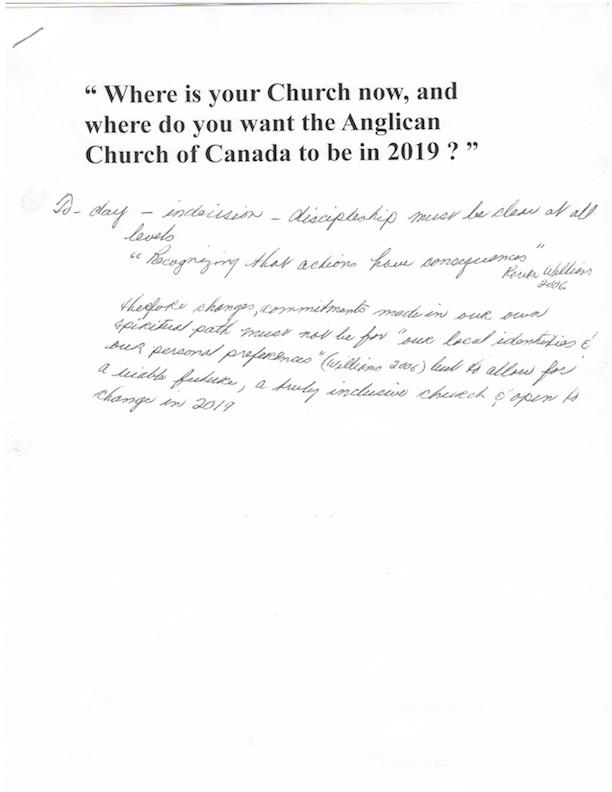 “ Where is your Church now, and
where do you want the Anglican
Church of Canada to be in 2019 ? ”
To-day – indecision – discipleship must be clear at all
levels
“Recognizing that actions have consequences”
Rowan Williams
2006
therefore changes, commitments made in our own
spiritual path must not be for “our local identities &
our personal preferences” (Williams 2006) but to allow for
a viable future, a truly inclusive church & open to
change in 2019